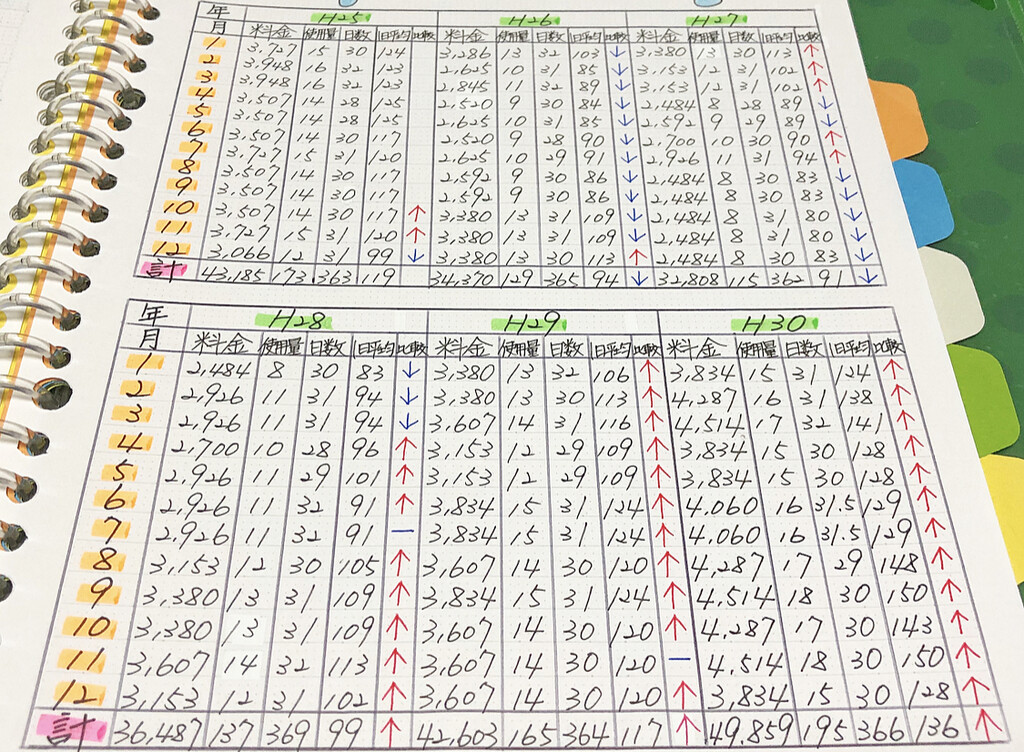 年 H25 H26 H27
月 料金 使用量 日数 1日平均 比較 料金 使用量 日数 1日平均 比較 料金 使用量 日数 1日平均 比較
1 3,727 15 30 124 3,286 13 32 103 ↓ 3,380 13 30 113 ↑
2 3,948 16 32 123 2,625 10 31 85 ↓ 3,153 12 31 102 ↑
3 3,948 16 32 123 2,845 11 32 89 ↓ 3,153 12 31 102 ↑
4 3,507 14 28 125 2,520 9 30 84 ↓ 2,484 8 28 89 ↓
5 3,507 14 28 125 2,625 10 31 85 ↓ 2,592 9 29 89 ↓
6 3,507 14 30 117 2,520 9 28 90 ↓ 2,700 10 30 90 ↑
7 3,727 15 31 120 2,625 10 29 91 ↓ 2,926 11 31 94 ↑
8 3,507 14 30 117 2,592 9 30 86 ↓ 2,484 8 30 83 ↓
9 3,507 14 30 117 2,592 9 30 86 ↓ 2,484 8 30 83 ↓
10 3,507 14 30 117 ↑ 3,380 13 31 109 ↓ 2,484 8 31 80 ↓
11 3,727 15 31 120 ↑ 3,380 13 31 109 ↓ 2,484 8 31 80 ↓
12 3,066 12 31 99 ↓ 3,380 13 30 113 ↑ 2,484 8 30 83 ↓
計 43,185 173 363 119 34,370 129 365 94 ↓ 32,808 115 362 91 ↓
年 H28 H29 H30
月 料金 使用量 日数 1日平均 比較 料金 使用量 日数 1日平均 比較 料金 使用量 日数 1日平均 比較
1 2,484 8 30 83 ↓ 3,380 13 32 106 ↑ 3,834 15 31 124 ↑
2 2,926 11 31 94 ↓ 3,380 13 30 113 ↑ 4,287 16 31 138 ↑
3 2,926 11 31 94 ↓ 3,607 14 31 116 ↑ 4,514 17 32 141 ↑
4 2,700 10 28 96 ↑ 3,153 12 29 109 ↑ 3,834 15 30 128 ↑
5 2,926 11 29 101 ↑ 3,153 12 29 109 ↑ 3,834 15 30 128 ↑
6 2,926 11 32 91 ↑ 3,834 15 31 124 ↑ 4,060 16 31.5 129 ↑
7 2,926 11 32 91 － 3,834 15 31 124 ↑ 4,060 16 31.5 129 ↑
8 3,153 12 30 105 ↑ 3,607 14 30 120 ↑ 4,287 17 29 148 ↑
9 3,380 13 31 109 ↑ 3,834 15 31 124 ↑ 4,514 18 30 150 ↑
10 3,380 13 31 109 ↑ 3,607 14 30 120 ↑ 4,287 17 30 143 ↑
11 3,607 14 32 113 ↑ 3,607 14 30 120 － 4,514 18 30 150 ↑
12 3,153 12 31 102 ↑ 3,607 14 30 120 ↑ 3,834 15 30 128 ↑
計 36,487 137 369 99 ↑ 42,603 165 364 117 ↑ 49,859 195 366 136 ↑